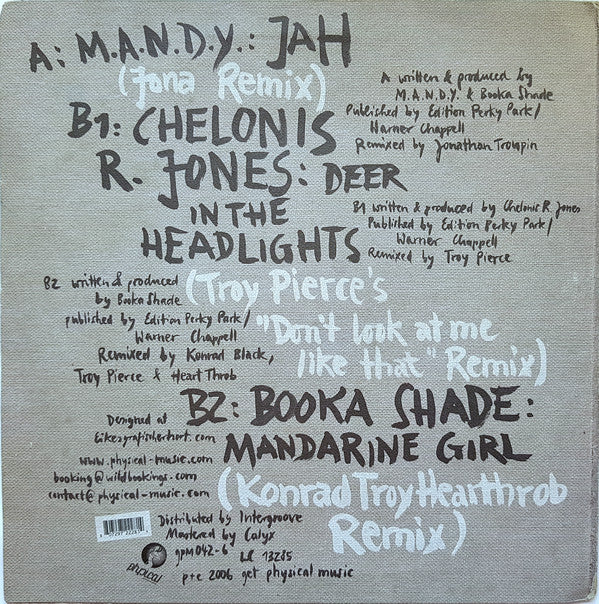 A: M.A.N.D.Y.: JAH
(Jona Remix)
A written & produced by
M.A.N.D.Y. & Booka Shade
Published by Edition Perky Park/
Warner Chappell
Remixed by Jonathan Troupin
B1: CHELONIS
R. JONES: DEER
IN THE
HEADLIGHTS
B1 written & produced by Chelonis R. Jones
Published by Edition Perky Park/
Warner Chappell
Remixed by Troy Pierce
(Troy Pierce's
"Don't look at me
like that" Remix)
B2 written & produced
by Booka Shade
published by Edition Perky Park/
Warner Chappell
Remixed by Konrad Black,
Troy Pierce & Heart Throb
B2: BOOKA SHADE:
MANDARINE GIRL
(Konrad Troy Hearthrob
Remix)
Designed at
www.physical-music.com
booking@wildbookings.com
contact@physical-music.com
Distributed by Intergroove
Mastered by Calyx
gpm 042-6 LC 13285
p+c 2006 get physical music
physical